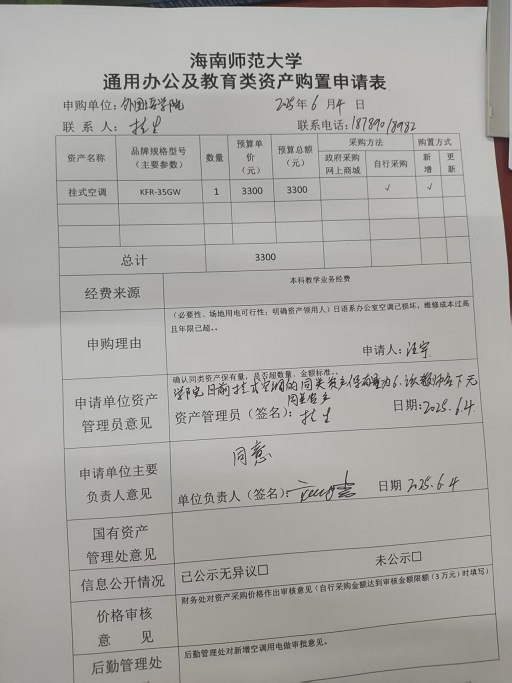 海南师范大学
通用办公及教育类资产购置申请表
申购单位: 外国语学院 2025年6月4日
联系人: 联系电话: 18789018982
资产名称 品牌规格型号（主要参数） 数量 预算单价（元） 预算总额（元） 采购方法 购置方式
政府采购网上商城 自行采购 新增 更新
挂式空调 KFR-35GW 1 3300 3300 √ √
总计 3300
经费来源 本科教学业务经费
申购理由 （必要性、场地用电可行性；明确资产领用人）日语系办公室空调已损坏，维修成本过高
且年限已超。。
申请人: 汪宇
申请单位资产管理员意见 确认同类资产保有量，是否超数量、金额标准。。
学院目前挂式空调的同类资产保有量为6.该教师名下无
同类资产
资产管理员（签名）: 日期: 2025.6.4
申请单位主要负责人意见 同意
单位负责人（签名）: 日期 2025.6.4
国有资产管理处意见
信息公开情况 已公示无异议□ 未公示□
价格审核意见 财务处对资产采购价格作出审核意见（自行采购金额达到审核金额限额（3万元）时填写）
后勤管理处 后勤管理处对新增空调用电做审批意见。